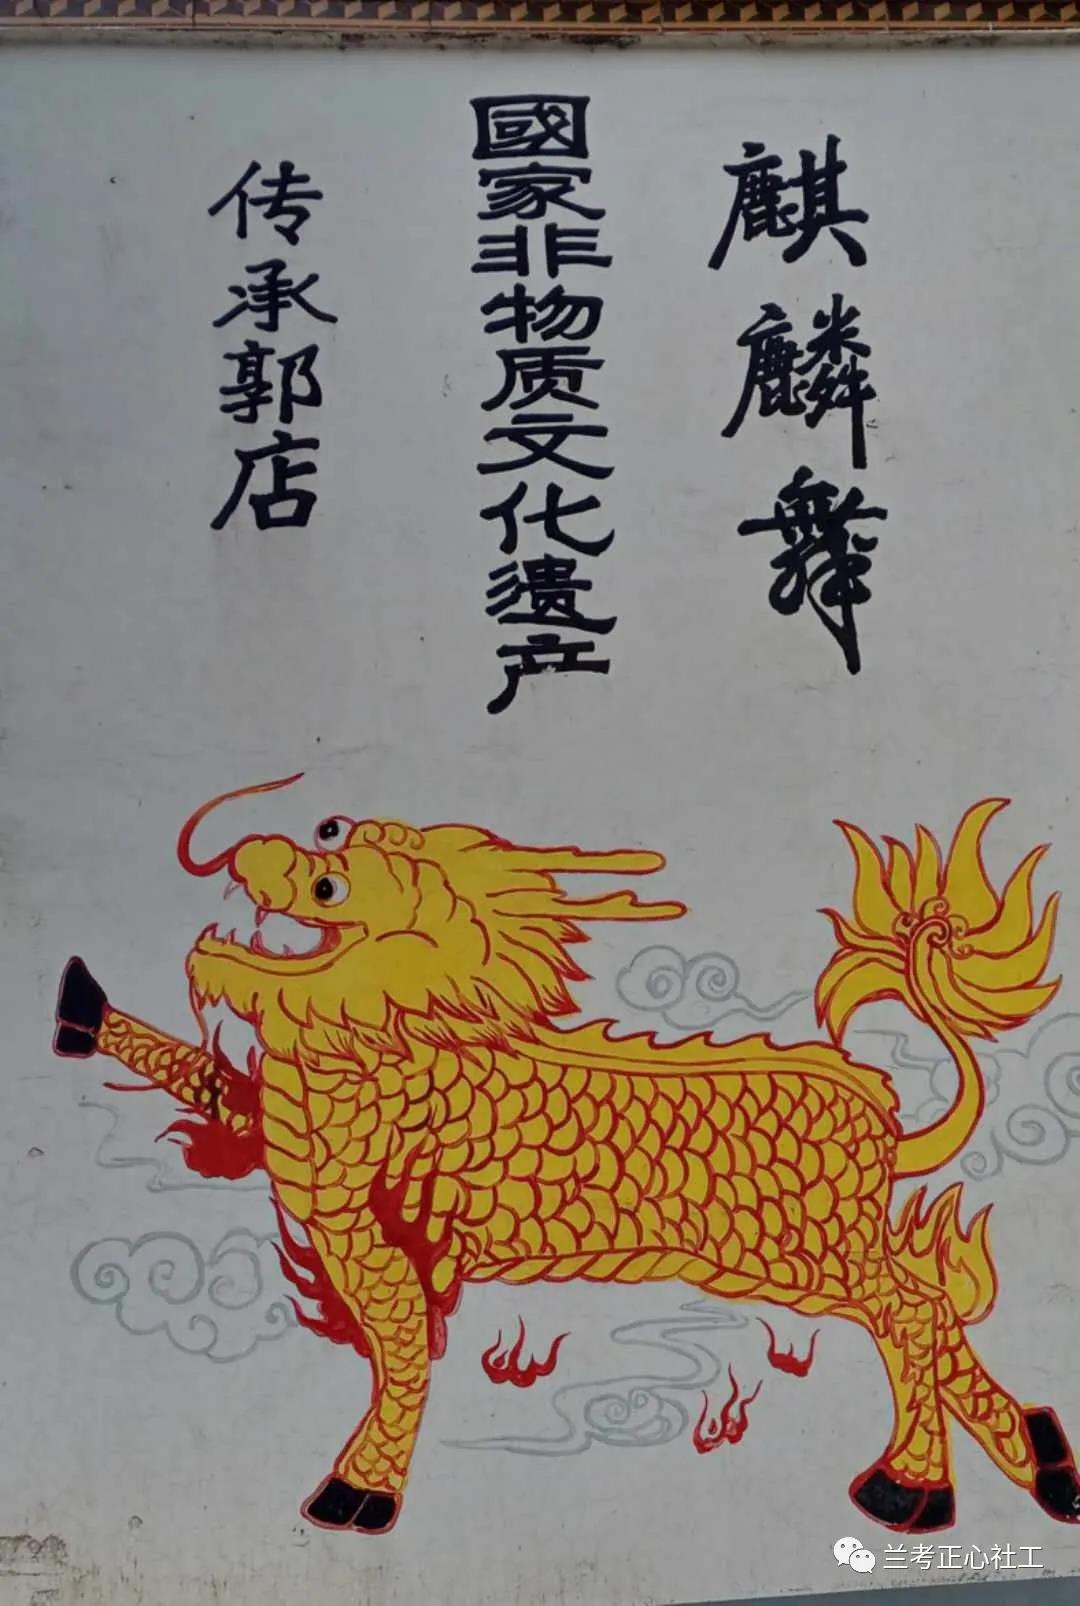 麒麟舞
國家非物质文化遗产
传承郭店
兰考正心社工